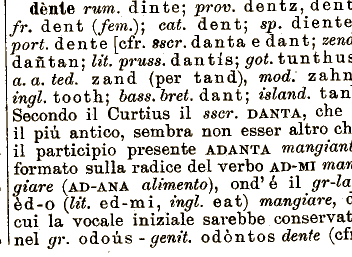 dènte rum. dinte; prov. dentz, dent
fr. dent (fem.); cat. dent; sp. diente
port. dente [cfr. sscr. danta e dant; zend
dañtan; lit. pruss. dantis; got. tunthus
a. a. ted. zand (per tand), mod. zahn
ingl. tooth; bass. bret. dant; island. tan
Secondo il Curtius il sscr. DANTA, che
il più antico, sembra non esser altro ch
il participio presente ADANTA mangiant
formato sulla radice del verbo AD-MI man
giare (AD-ANA alimento), ond'é il gr-la
èd-o (lit. ed-mi, ingl. eat) mangiare, 
cui la vocale iniziale sarebbe conservat
nel gr. odoús - genit. odòntos dente (cfr